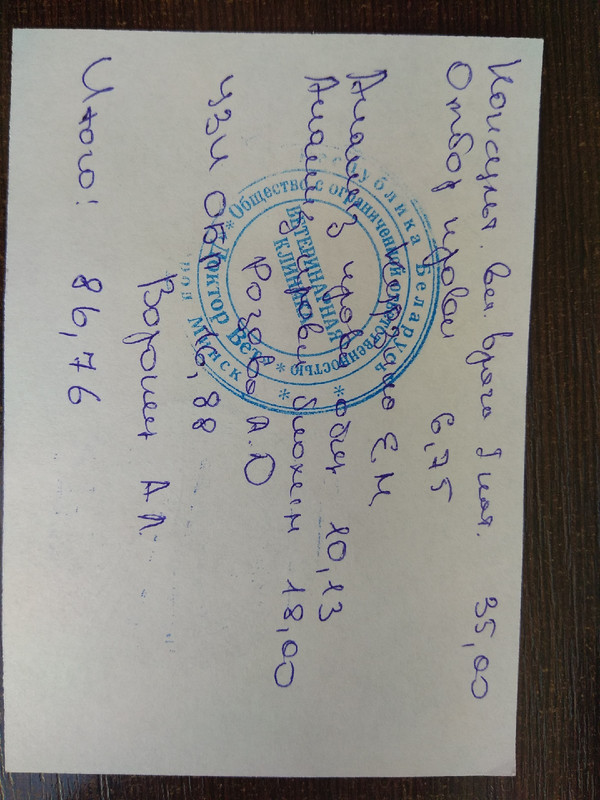 Консульт. вет. врача I кат. 35,00
Отбор крови 6,75
Е М
Анализ крови общ 10,13
Анализ крови биохим 18,00
А.О
УЗИ ОБП 16,88
Воронец А Л.
Итого: 86,76
Беларусь * Минск *
Общество с ограниченной ответственностью * Доктор Вет *
ВЕТЕРИНАРНАЯ
КЛИНИКА